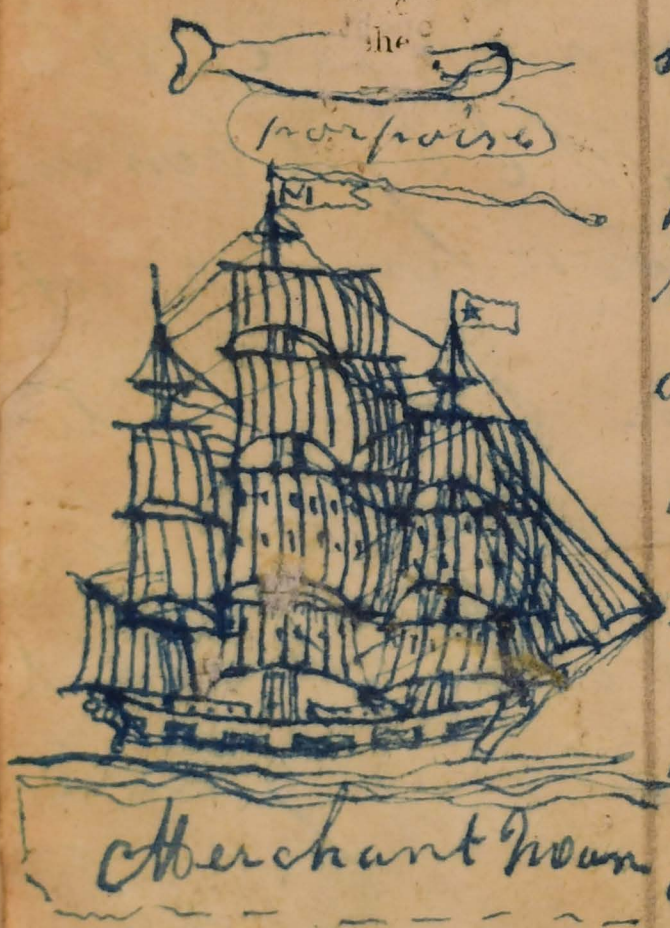 the
porpoise
M
Merchant man